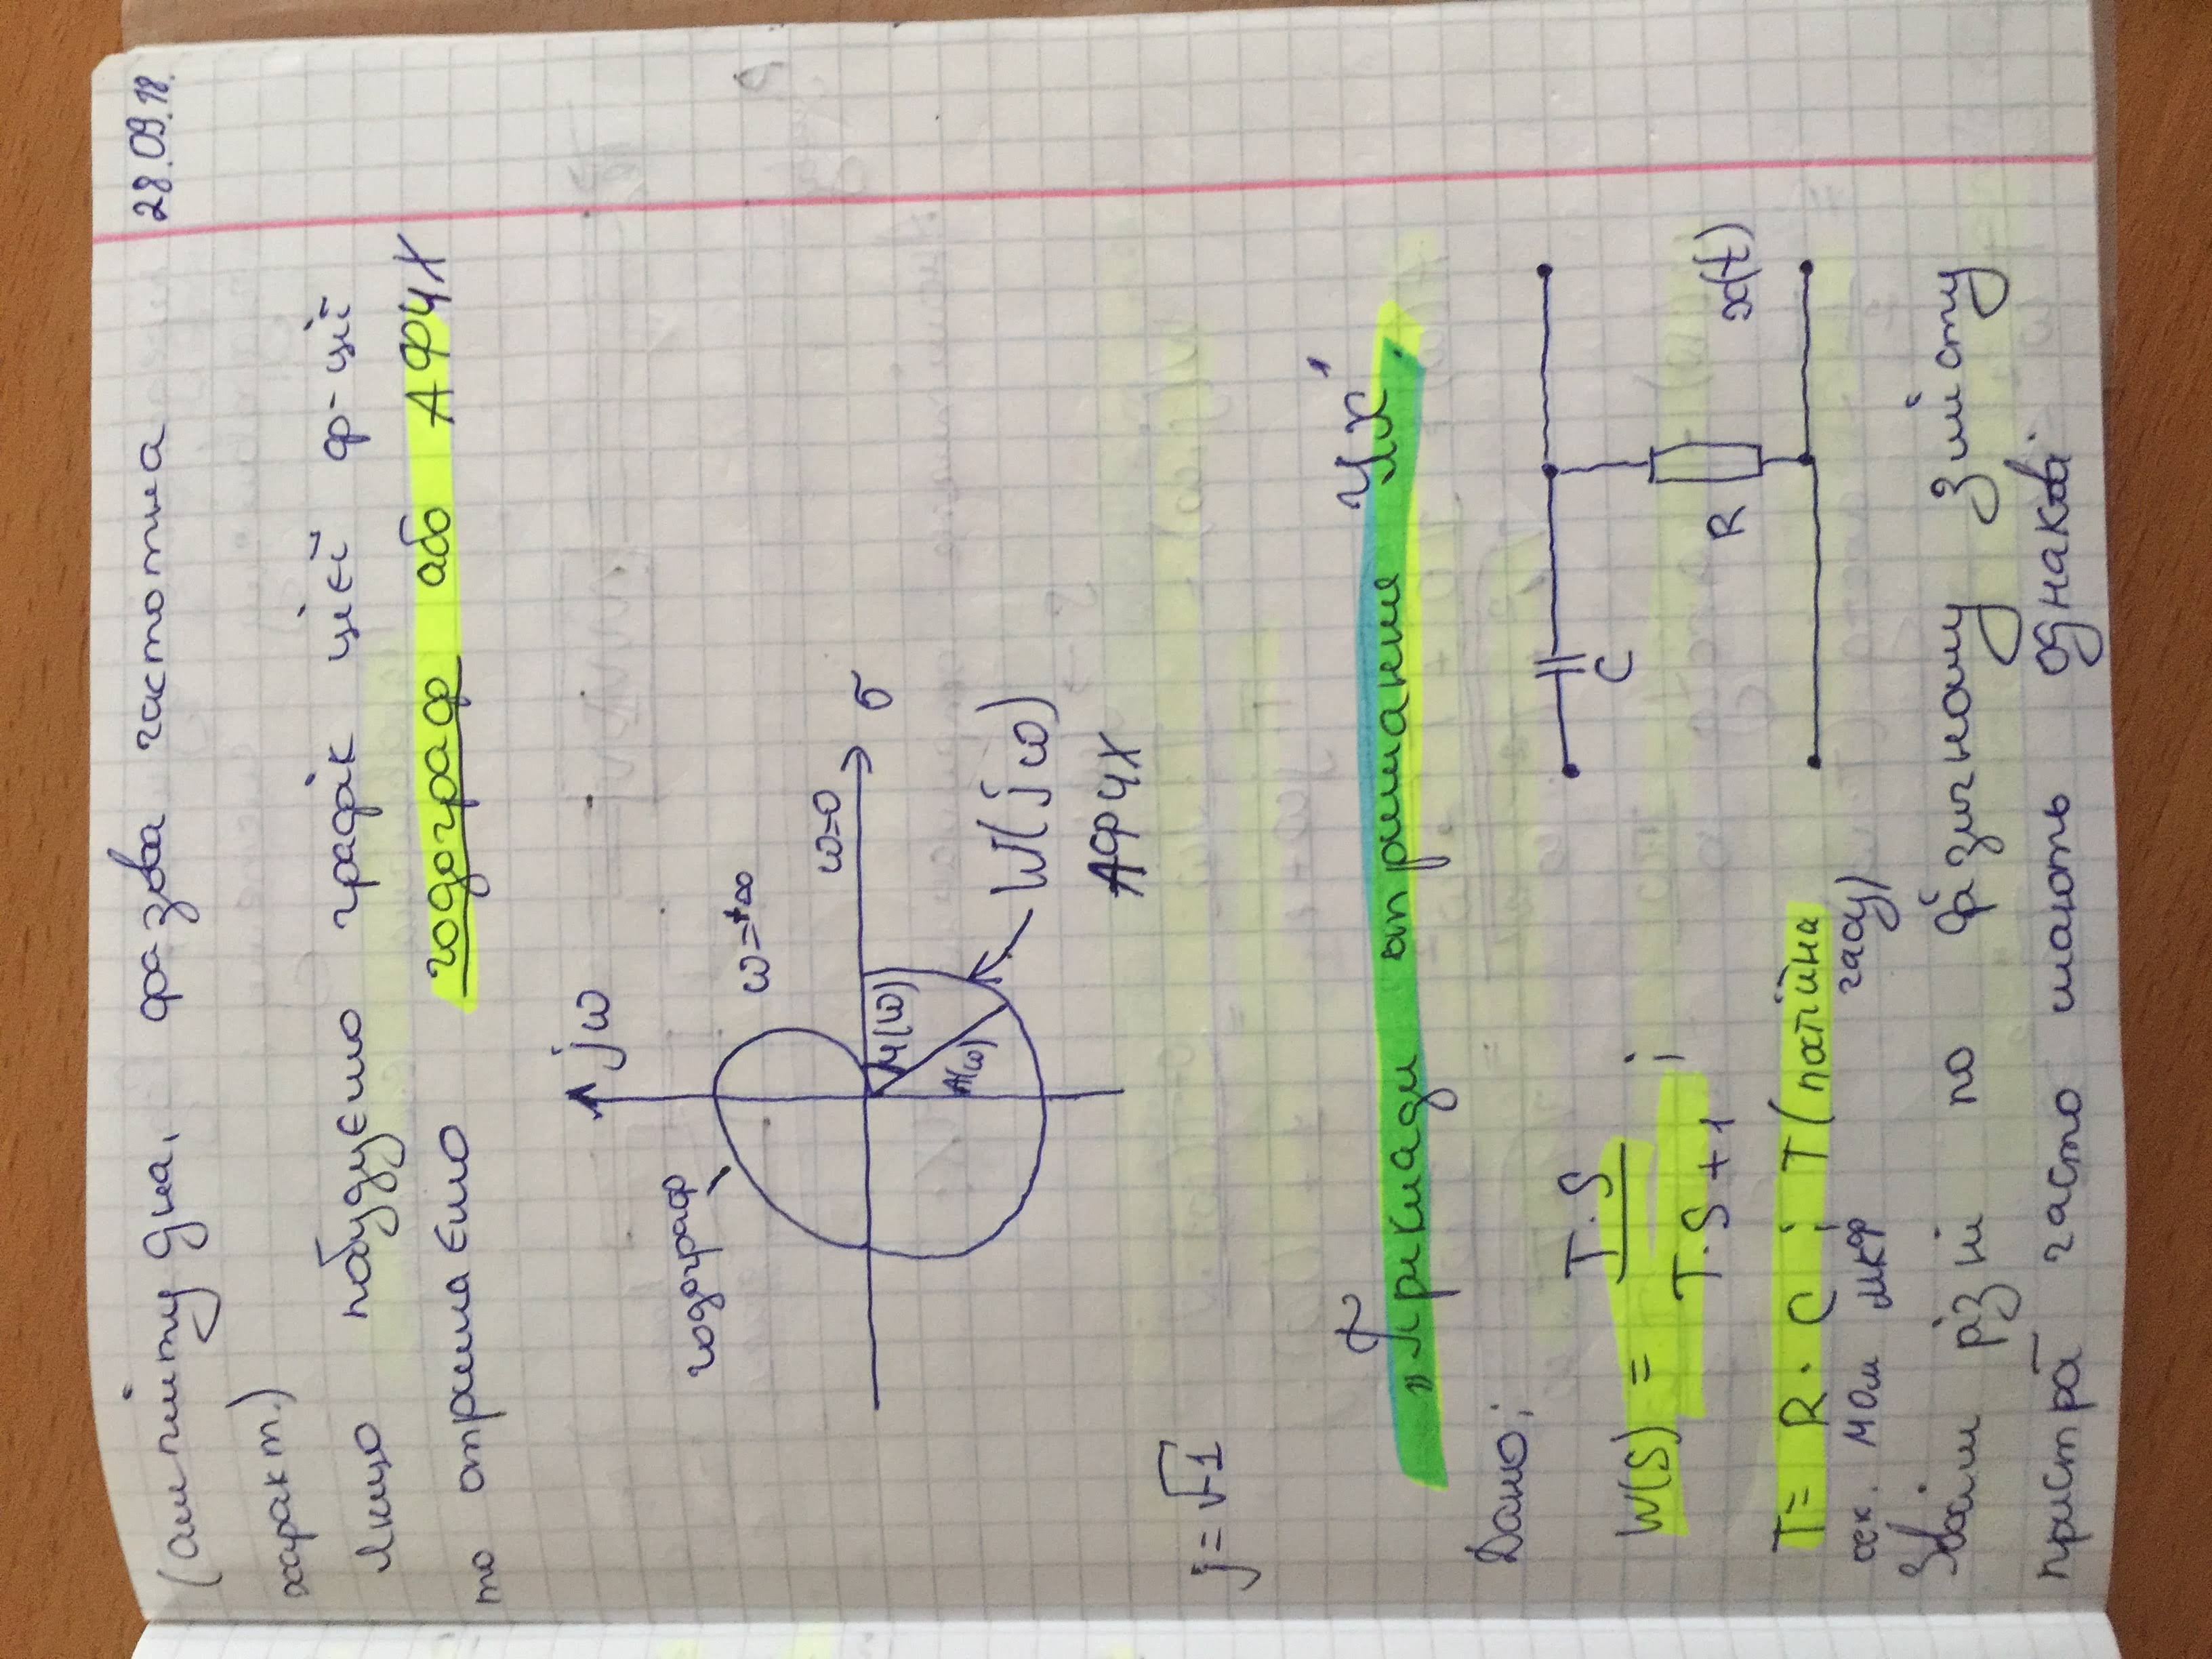 (амплітудна, фазова частотна 28.09.18.
характ.)
Якщо побудуємо графік цієї ф-ції
то отримаємо годограф або АФЧХ
jω
годограф
ω=+∞
ω=0
σ
φ(ω)
A(ω)
W(jω)
АФЧХ
j=√-1
„Приклади отримання ЧХ"
Дано;
W(S) = T·S / T·S+1 ;
C
R
x(t)
T= R · C ; T (постійна
сек. МОм мкФ часу)
Зовсім різні по фізичному змісту
пристрої часто мають однакові